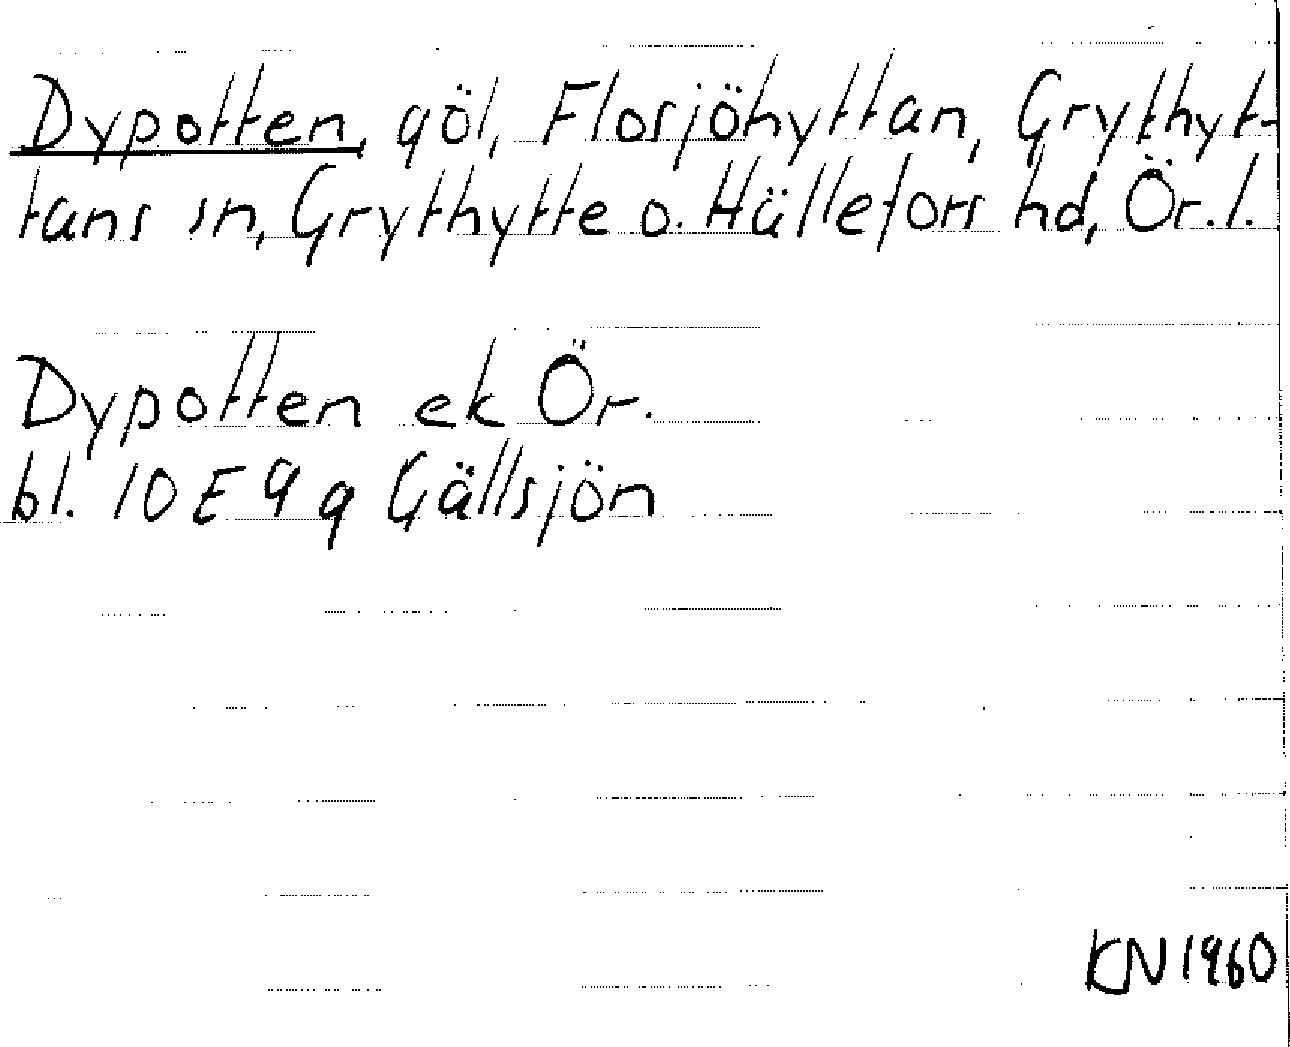 Dypotten, göl, Flosjöhyttan, Grythyt-
tans sn, Grythytte o. Hällefors hd, Ör. l.
Dypotten ek Ör.
bl. 10 E 9 g Gällsjön
KN 1960